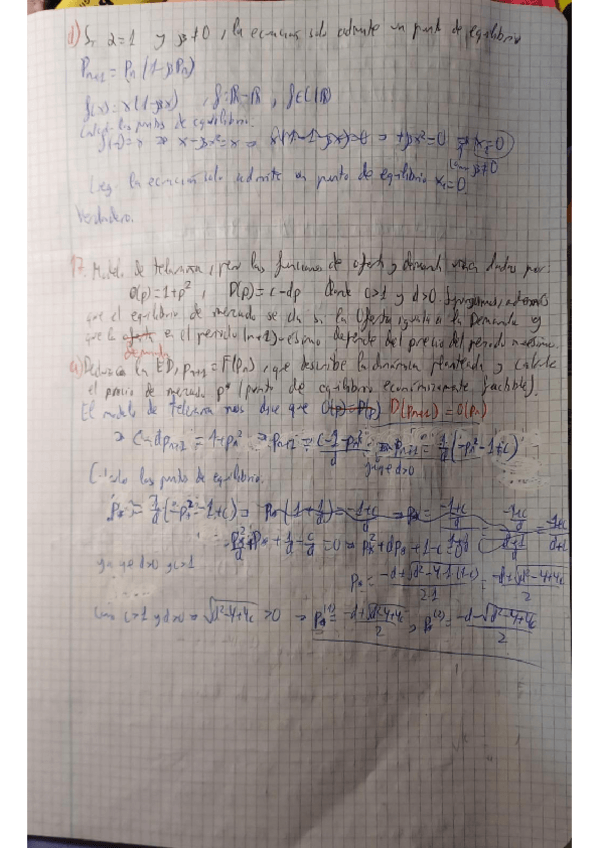 d) Si α=1 y β≠0, la ecuación solo admite un punto de equilibrio
Pn+1 = Pn (1-βPn)
f(x)=x(1-βx), f:R→R, f∈C(R)
puntos de equilibrio.
f(x)=x ⇒ x-βx²=x ⇒ ⇒ βx²=0 x=0
β≠0
la ecuación solo admite un punto de equilibrio x=0.
Verdadero.
17. Modelo de telaraña, pero las funciones de oferta y demanda dadas por
O(p)=1+p², D(p)=c-dp donde c>1 y d>0. Supongamos, además
que el equilibrio de mercado se da si la Oferta iguala a la Demanda y
que la en el período (n+1)-ésimo depende del precio del período n-ésimo.
demanda
a) Deduzca la ED, pn+1=F(pn), que describe la dinámica planteada y calcule
el precio de mercado p* (punto de equilibrio económicamente factible).
El modelo de telaraña nos dice que D(pn+1)=O(pn)
⇒ c-dpn+1 = 1+pn² ⇒ pn+1 = (c-1-pn²)/d ⇒ pn+1 = 1/d(-pn²-1+c)
ya que d>0
los puntos de equilibrio.
p* = 1/d(-p*²-1+c)
p*²/d + p* + 1/d - c/d = 0 ⇒ p*²+dp*+1-c=0
ya que d>0 y c>1
p* = (-d±√(d²-4·1(1-c)))/(2·1) = (-d±√(d²-4+4c))/2
c>1 y d>0 ⇒ √(d²-4+4c) >0 ⇒ p*(1) = (-d+√(d²-4+4c))/2, p*(2) = (-d-√(d²-4+4c))/2